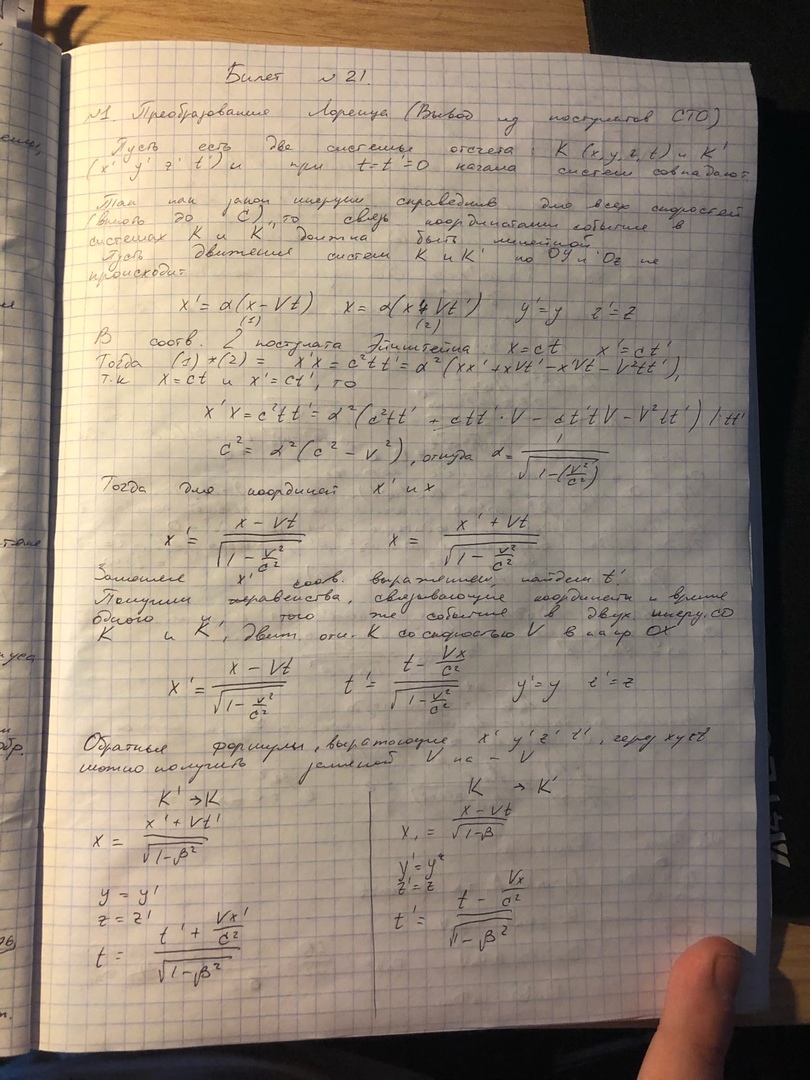 Билет №21.
№1. Преобразование Лоренца (Вывод из постулатов СТО)
Пусть есть две системы отсчета: K (x, y, z, t) и K'
(x' y' z' t') и при t=t'=0 начала систем совпадают.
Так как закон инерции справедлив для всех скоростей
(вплоть до C), то связь координатами событие в
системах K и K', должна быть линейной
Пусть движения систем K и K' по Oy и Oz не
происходит
x' = α(x − Vt) x = α(x' + Vt') y' = y z' = z
(1) (2)
В соотв. 2 постулата Эйнштейна x = ct x' = ct'
Тогда (1)*(2) = x'x = c²tt' = α²(xx' + xVt' − x'Vt − V²tt'),
т.к x = ct и x' = ct', то
x'x = c²tt' = α²(c²tt' + ctt'·V − ct'tV − V²tt') |·tt'
c² = α²(c² − V²), откуда α = 1/√(1−(V²/c²))
Тогда для координат x' и x
x' = (x − Vt)/√(1 − V²/c²) x = (x' + Vt)/√(1 − V²/c²)
x' соотв. выражением, найдем t'.
Получим неравенства, связывающие координаты и время
одного и того же событие в двух инерц. со
K и K', движ. отн. K со скоростью V в напр OX
x' = (x − Vt)/√(1 − V²/c²) t' = (t − Vx/c²)/√(1 − V²/c²) y' = y z' = z
Обратные формулы, выражающие x' y' z' t', через xyzt
можно получить заменой V на − V
K' → K
x = (x' + Vt')/√(1−β²)
y = y'
z = z'
t = (t' + Vx'/c²)/√(1−β²)
K → K'
x, = (x − Vt)/√(1−β)
y' = y
z' = z
t' = (t − Vx/c²)/√(1−β²)